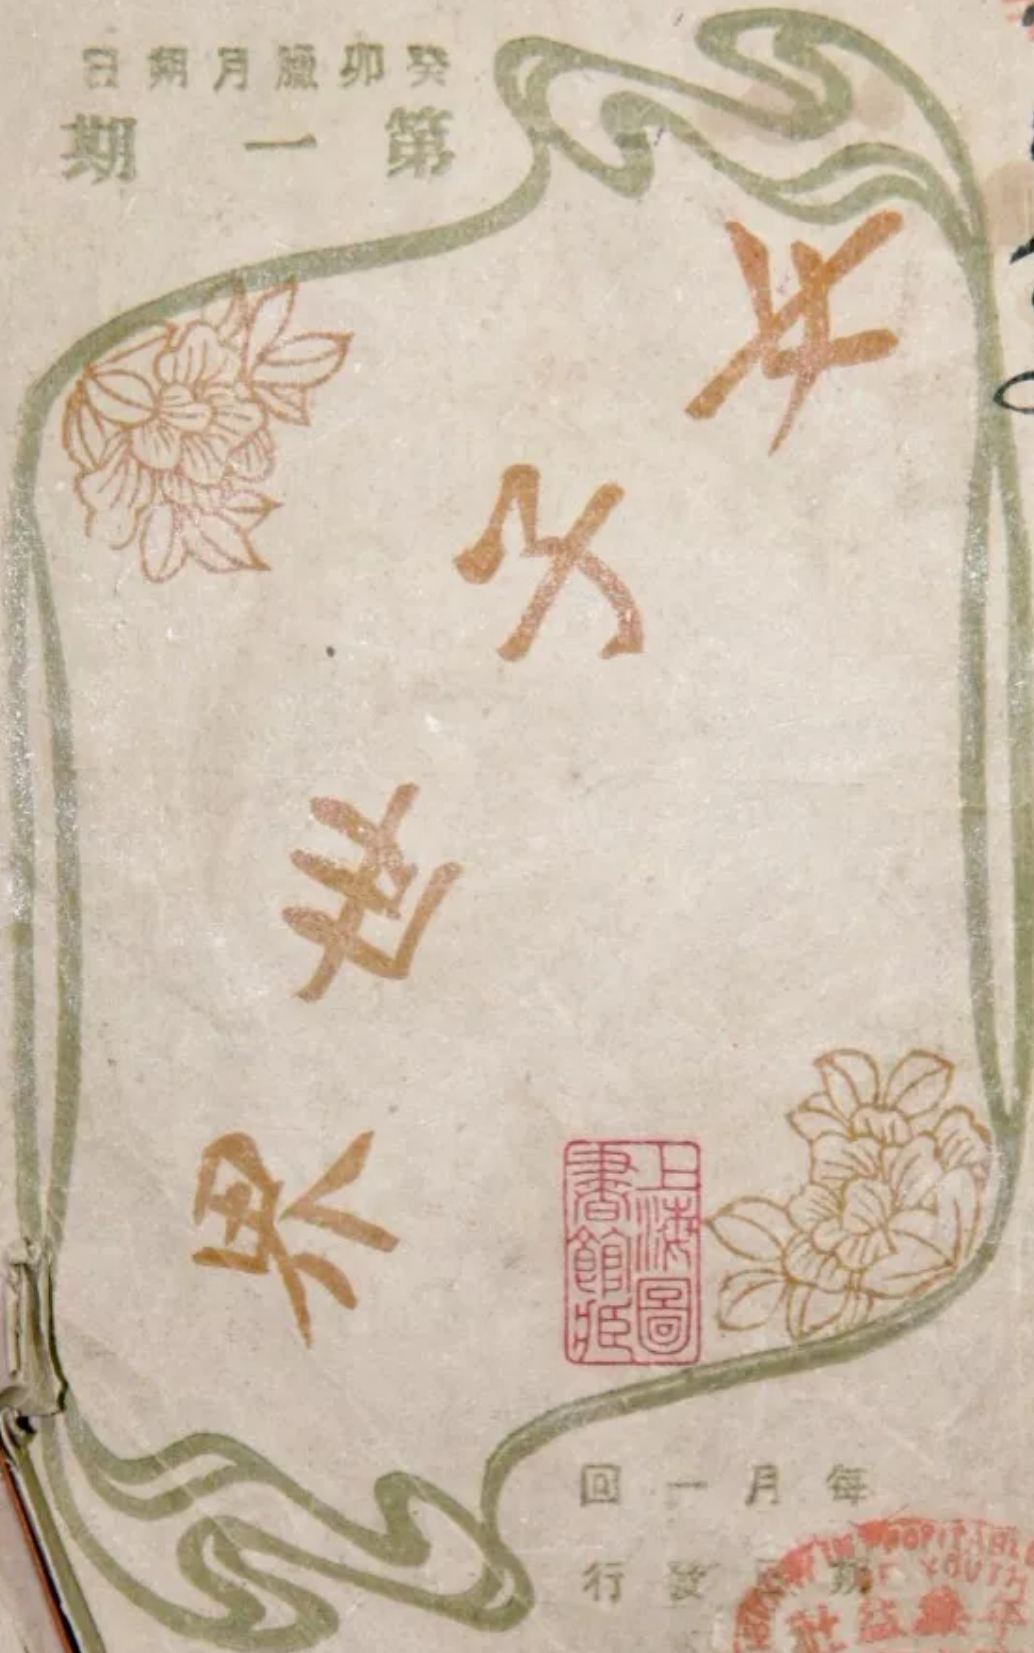 癸卯臘月朔日
第一期
女子世界
上海圖
書館藏
每月一回
朔日發行